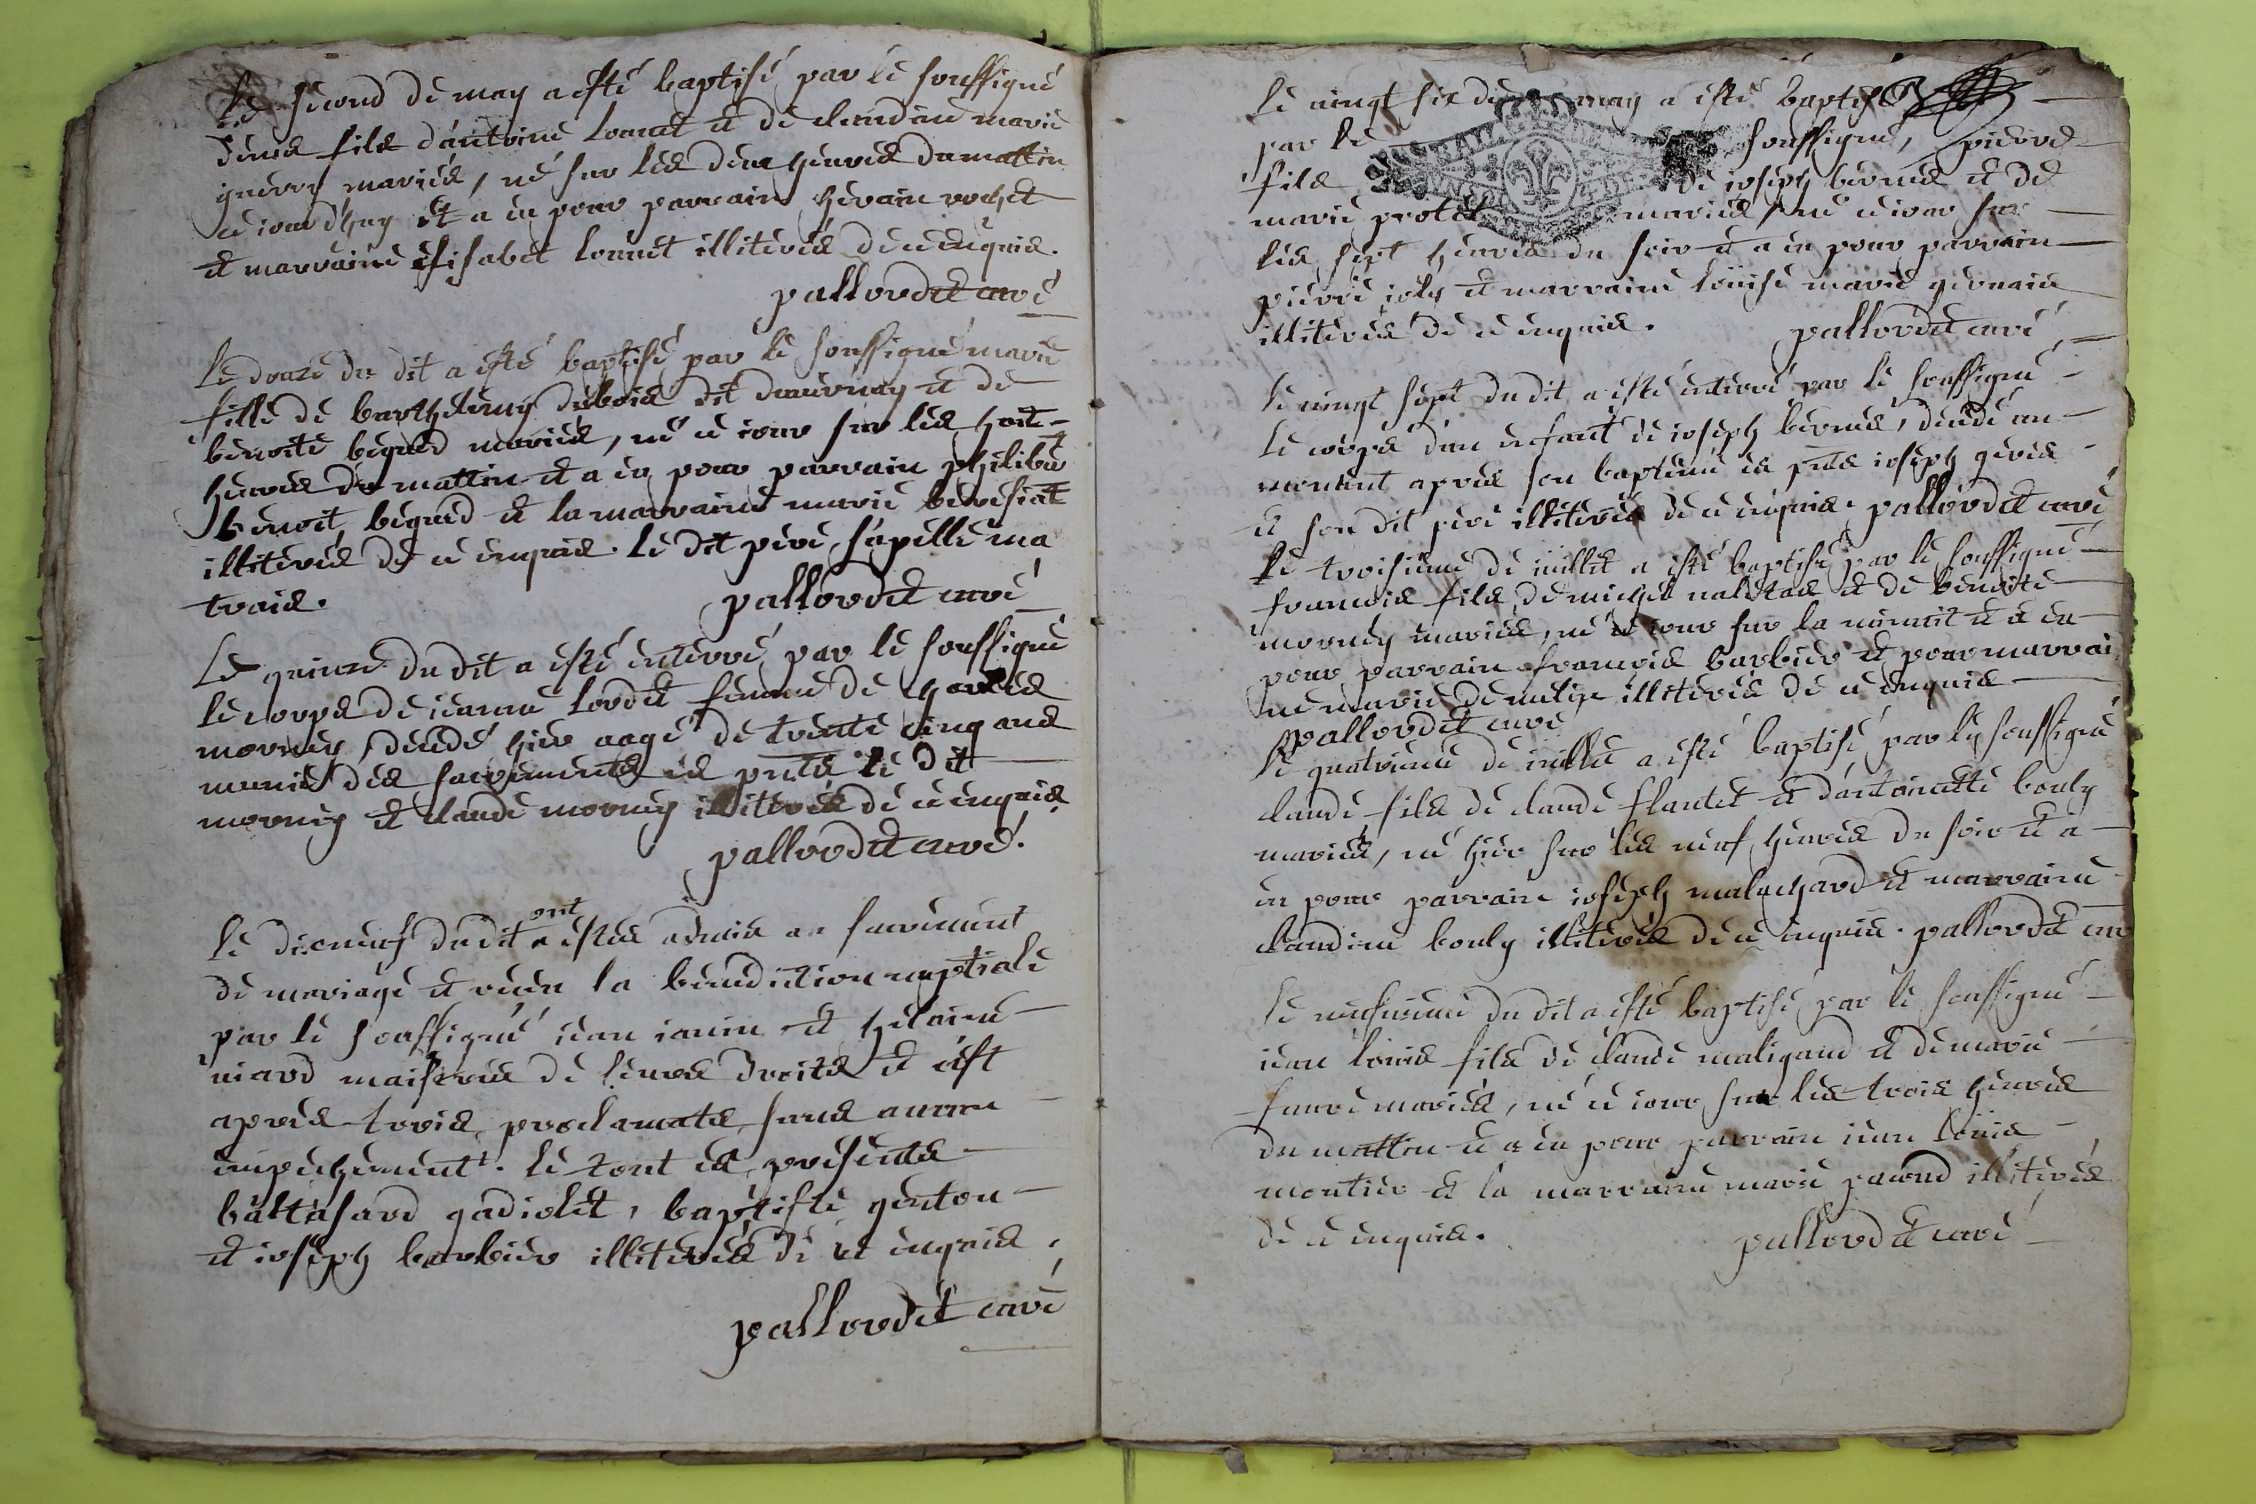 Le second de may a esté baptisé par le soussigné
denis fils d'antoine lornet et de claudine marie
guerry mariés, né sur les deux heures du mattin
ce iourd'huy et a eu pour parrain herain rochet
et marraine elisabet lornet illiterés de ce enquis.
pallordet curé
Le douze du dit a esté baptisé par le soussigné marie
fille de barthelemy dubois dit dauvernay et de
benoite begued mariés, né ce iour sur les huit
heures du mattin et a eu pour parrain philibe
benoit begued et la marraine marie beresiat
illiterés de ce enquis. le dit pere s'apelle ma
trais.
pallordet curé
Le quinze du dit a esté enterré par le soussigné
le corps de ieanne lordet femme de charles
morney, decedé hier aagé de trente cinq ans
munis des sacrements es pnts le dit
morney et claude morney illiterés de ce enquis
pallordet curé.
ont
Le dixneuf du dit a estés admis au sacrement
de mariage et reçu la benediction nuptiale
par le soussigné iean ianin et helaine
niard maistres de leurs droits et c'est
après trois proclamats sans aucun
empechement. le tout es presents
baltasard gadiolet, baptiste genton
et ioseph barbier illiterés de ce enquis,
pallordet curé
Le vingt six de may a esté baptisé
par le soussigné, pierre
fils de ioseph bernes et de
marie protet mariés né ce iour sur
les sept heures du soir et a eu pour parrain
pierre ioly et marraine loüise marie germain
illiterés de ce enquis. pallordet curé,
Le vingt sept du dit a esté enterré par le soussigné
le corps d'un enfant de ioseph bernes, decedé un
moment après son baptême es pnts ioseph geves
et son dit pere illiterés de ce enquis. pallordet curé
Le troisieme de iüillet a esté baptisé par le soussigné
francois fils de michel naletas et de benoite
morney mariés, né ce iour sur la minuit et a eu
pour parrain francois barbier et pour marrai
ne marie demulin illiterés de ce enquis
pallordet curé
Le quatrieme de iüillet a esté baptisé par le soussigné
claude fils de claude flantet et d'antoinette bouly
mariés, né hier sur les neuf heures du soir et a
eu pour parrain ioseph malachard et marraine
claudine bouly illiterés de ce enquis. pallordet cur
Le neufvieme du dit a esté baptisé par le soussigné
iean loüis fils de claude maligand et de marie
faure mariés, né ce iour sur les trois heures
du mattin et a eu pour parrain iean loüis
montier et la marraine marie pacoud illiterés
de ce enquis. pallordet curé